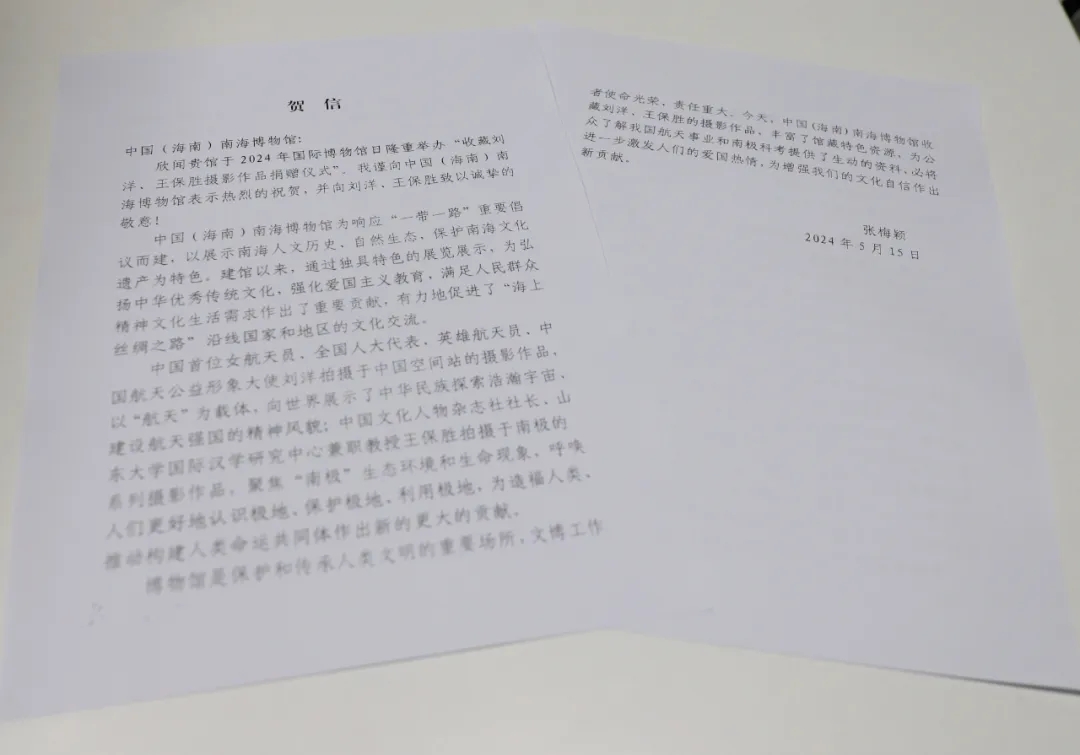 贺 信
中国（海南）南海博物馆：
欣闻贵馆于 2024 年国际博物馆日隆重举办“收藏刘
洋、王保胜摄影作品捐赠仪式”。我谨向中国（海南）南
海博物馆表示热烈的祝贺，并向刘洋、王保胜致以诚挚的
敬意！
中国（海南）南海博物馆为响应“一带一路”重要倡
议而建，以展示南海人文历史、自然生态，保护南海文化
遗产为特色。建馆以来，通过独具特色的展览展示，为弘
扬中华优秀传统文化，强化爱国主义教育，满足人民群众
精神文化生活需求作出了重要贡献，有力地促进了“海上
丝绸之路”沿线国家和地区的文化交流。
中国首位女航天员、全国人大代表、英雄航天员、中
国航天公益形象大使刘洋拍摄于中国空间站的摄影作品，
以“航天”为载体，向世界展示了中华民族探索浩瀚宇宙、
建设航天强国的精神风貌；中国文化人物杂志社社长、山
东大学国际汉学研究中心兼职教授王保胜拍摄于南极的
系列摄影作品，聚焦“南极”生态环境和生命现象，呼唤
人们更好地认识极地、保护极地、利用极地，为造福人类、
推动构建人类命运共同体作出新的更大的贡献。
博物馆是保护和传承人类文明的重要场所，文博工作
者使命光荣、责任重大。今天，中国（海南）南海博物馆收
藏刘洋、王保胜的摄影作品，丰富了馆藏特色资源，为公
众了解我国航天事业和南极科考提供了生动的资料，必将
进一步激发人们的爱国热情，为增强我们的文化自信作出
新贡献。
张梅颖
2024 年 5 月 15 日